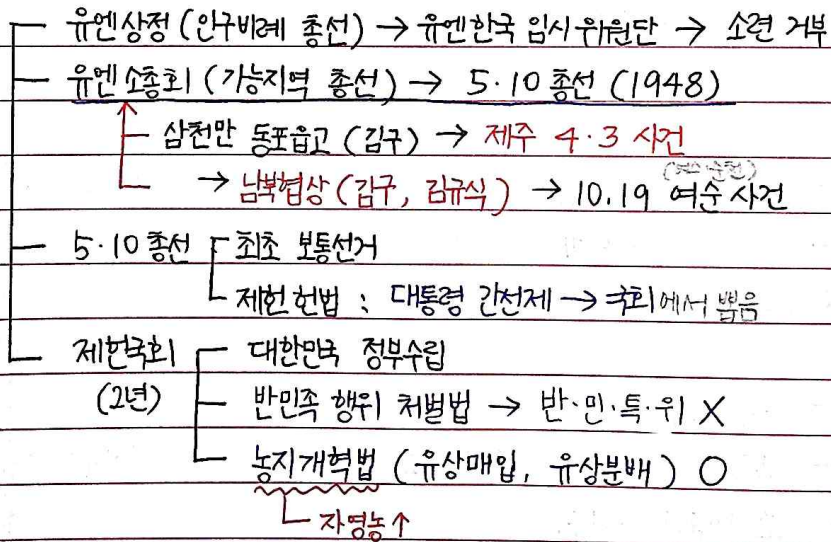 유엔상정 (인구비례 총선) → 유엔한국 임시위원단 → 소련 거부
유엔 소총회 (가능지역 총선) → 5·10 총선 (1948)
삼천만 동포읍고 (김구) → 제주 4·3 사건
(여수·순천)
→ 남북협상 (김구, 김규식) → 10.19 여순 사건
5·10 총선 최초 보통선거
제헌 헌법 : 대통령 간선제 → 국회에서 뽑음
제헌국회 대한민국 정부수립
(2년) 반민족 행위 처벌법 → 반·민·특·위 X
농지개혁법 (유상매입, 유상분배) O
자영농↑